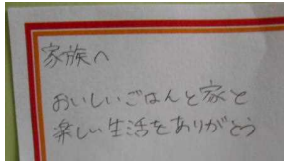 家族へ
おいしいごはんと家と
楽しい生活をありがとう